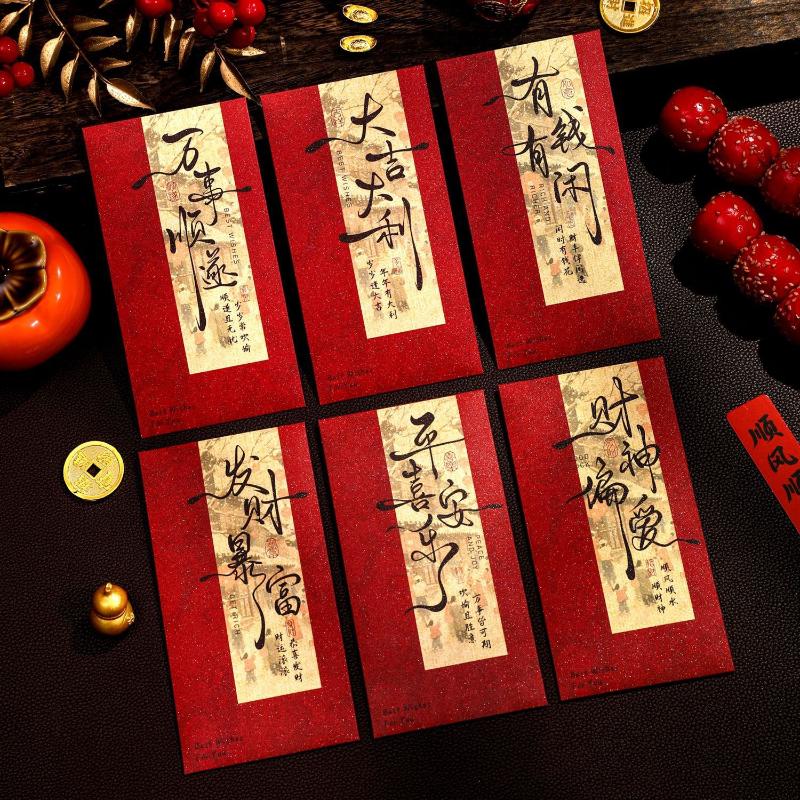 万事顺遂
BEST WISHES
岁岁常欢愉
顺遂且无忧
Best Wishes
For You
大吉大利
BEST WISHES
年年有大利
岁岁逢大吉
Best Wishes
For You
有钱有闲
RICH AND
闲时有钱花
Best Wishes
For You
发财暴富
GET RICH
恭喜发财
财运滚滚
Best Wishes
For You
平安喜乐
PEACE
AND JOY
万事皆可期
欢愉且胜意
Best Wishes
For You
财神偏爱
顺风顺水
顺财神
Best Wishes
For You
顺风顺